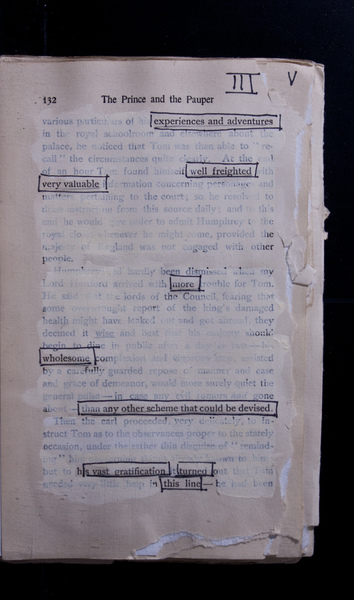 III V
132 The Prince and the Pauper
various particulars of his experiences and adventures
in the royal schoolroom and elsewhere about the
palace, he noticed that Tom was then able to "re-
call" the circumstances quite clearly. At the end
of an hour Tom found himself well freighted with
very valuable information concerning personages and
matters pertaining to the court; so he resolved to
draw instruction from this source daily; and to this
end he would give order to admit Humphrey to the
royal closet whenever he might come, provided the
majesty of England was not engaged with other
people.
Humphrey had hardly been dismissed when my
Lord Hertford arrived with more trouble for Tom.
He said that the lords of the Council, fearing that
some overwrought report of the king's damaged
health might have leaked out and got abroad, they
deemed it wise and best that his majesty should
begin to dine in public after a day or two—his
wholesome complexion and vigorous step, assisted
by a carefully guarded repose of manner and ease
and grace of demeanor, would more surely quiet the
general pulse—in case any evil rumors had gone
about—than any other scheme that could be devised.
Then the earl proceeded, very delicately, to in-
struct Tom as to the observances proper to the stately
occasion, under the rather thin disguise of "remind-
ing" him known to him;
but to his vast gratification it turned out that Tom
needed very little help in this line— he had been